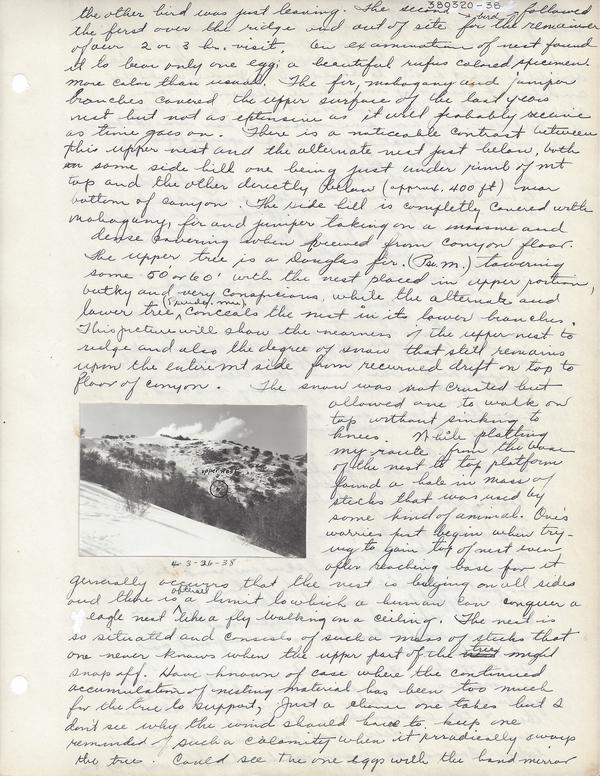 380320-38
the other bird was just leaving. The second bird followed
the first over the ridge and out of site for the remainer
of our 2 or 3 hr. visit. An examination of nest found
it to bear only one egg; a beautiful rufus colored specimen
more color than usual. The fir, mahogany and juniper
branches covered the upper surface of the last years
nest but not as extensive as it will probably receive
as time goes on. There is a noticeable contrast between
this upper nest and the alternate nest just below, both
on same side hill one being just under rimb of mt
top and the other directly below (approx. 400 ft) near
bottom of canyon. The side hill is completly covered with
mahogany, fir and juniper taking on a massive and
dense covering when viewed from canyon floor.
The upper tree is a Douglas fir. (Pseu. m.) towering
some 50' or 60' with the nest placed in upper portion,
bulky and very conspicious, while the alternate and
lower tree, conceals the nest in its lower branches.
This picture will show the nearness of the upper nest to
ridge and also the degree of snow that still remains
upon the entire mt side from recurved drift on top to
floor of canyon. The snow was not crusted but
allowed one to walk on
top without sinking to
knees. While plotting
my route from the base
of the nest to top platform
found a hole in mass of
sticks that was used by
some kind of animal. One's
worries just begin when try-
ing to gain top of nest even
after reaching base for it
upper nest
3-26-38
generally occurrs that the nest is bulging on all sides
and there is a limit to which a human can conquer a
eagle nest like a fly walking on a ceiling. The nest is
so situated and consists of such a mass of sticks that
one never knows when the upper part of the tree might
snap off. Have known of case where the continued
accumulation of nesting material has been too much
for the tree to support, Just a chance one takes but I
don't see why the wind should have to keep one
reminded of such a calamity when it irradically sways
the tree. Could see the one eggs with the hand mirror